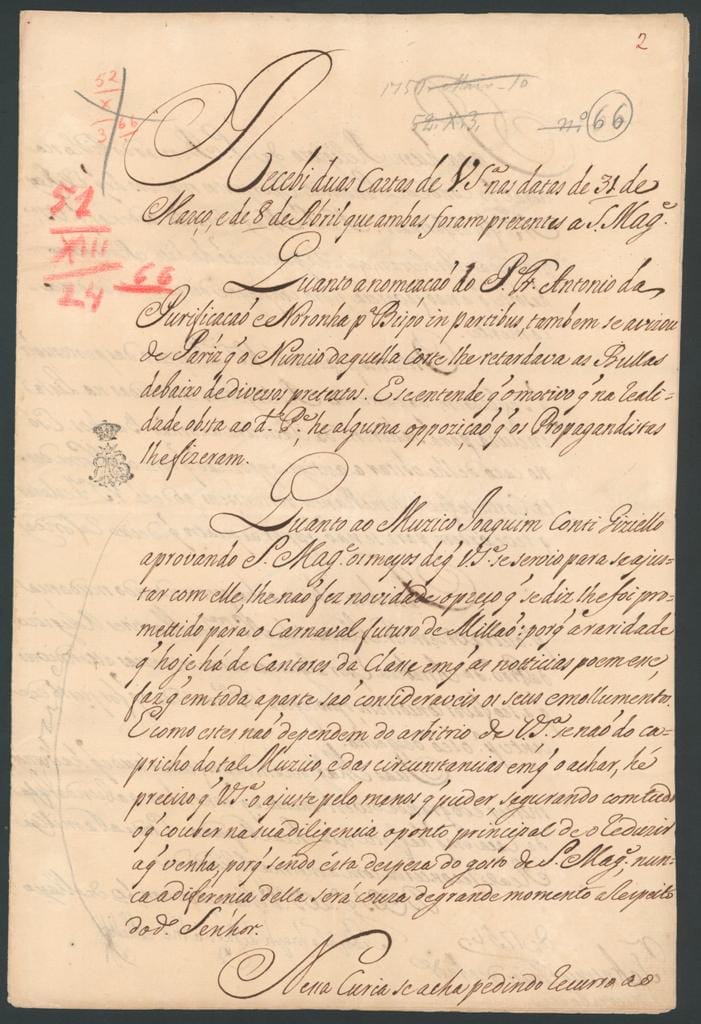 2
1751 Maio 10
52. X. 3.
nº 66
52
X
3 66
51
XIII
24 66
Recebi duas Cartas de V.Sª. nas datas de 31 de
Março, e de 8 de Abril que ambas foram prezentes a S. Magᵉ.
Quanto a nomeaçaõ do P. Fr. Antonio da
Purificaçaõ e Noronha pª Bispo in partibus, tambem se avizou
de Pariz q̃ o Nuncio daquella Corte lhe retardava as Bullas
debaixo de diversos pretextos. E se entende q̃ o motivo q̃ na reali-
dade obsta ao dº. Pᵉ., he alguma oppoziçaõ q̃ os Propagandistas
lhe fizeram.
Quanto ao Muzico Joaquim Conti Giziello
aprovando S. Magᵉ. os meyos de q̃ V.Sª. se servio para se ajus-
tar com elle, lhe naõ fez novidade o preço q̃ se diz lhe foi pro-
mettido para o Carnaval futuro de Millaõ: porq̃ a raridade
q̃ hoje há de Cantores da Classe em q̃ as noticias poem esse,
faz q̃ em toda a parte saõ consideraveis os seus emollumentos.
E como estes naõ dependem do arbitrio de V.Sª. senaõ do ca-
pricho do tal Muzico, e das circunstancias em q̃ o achar, hé
precizo q̃ V.Sª. o ajuste pelo menos q̃ puder, segurando com tudo
o q̃ couber na sua diligencia o ponto principal de o reduzir
a q̃ venha, porq̃ sendo esta despeza do gosto de S. Magᵉ., nun-
ca a diferença della será couza de grande momento a respeito
do dº. Senhor.
Nessa Curia se acha pedindo recurso ao